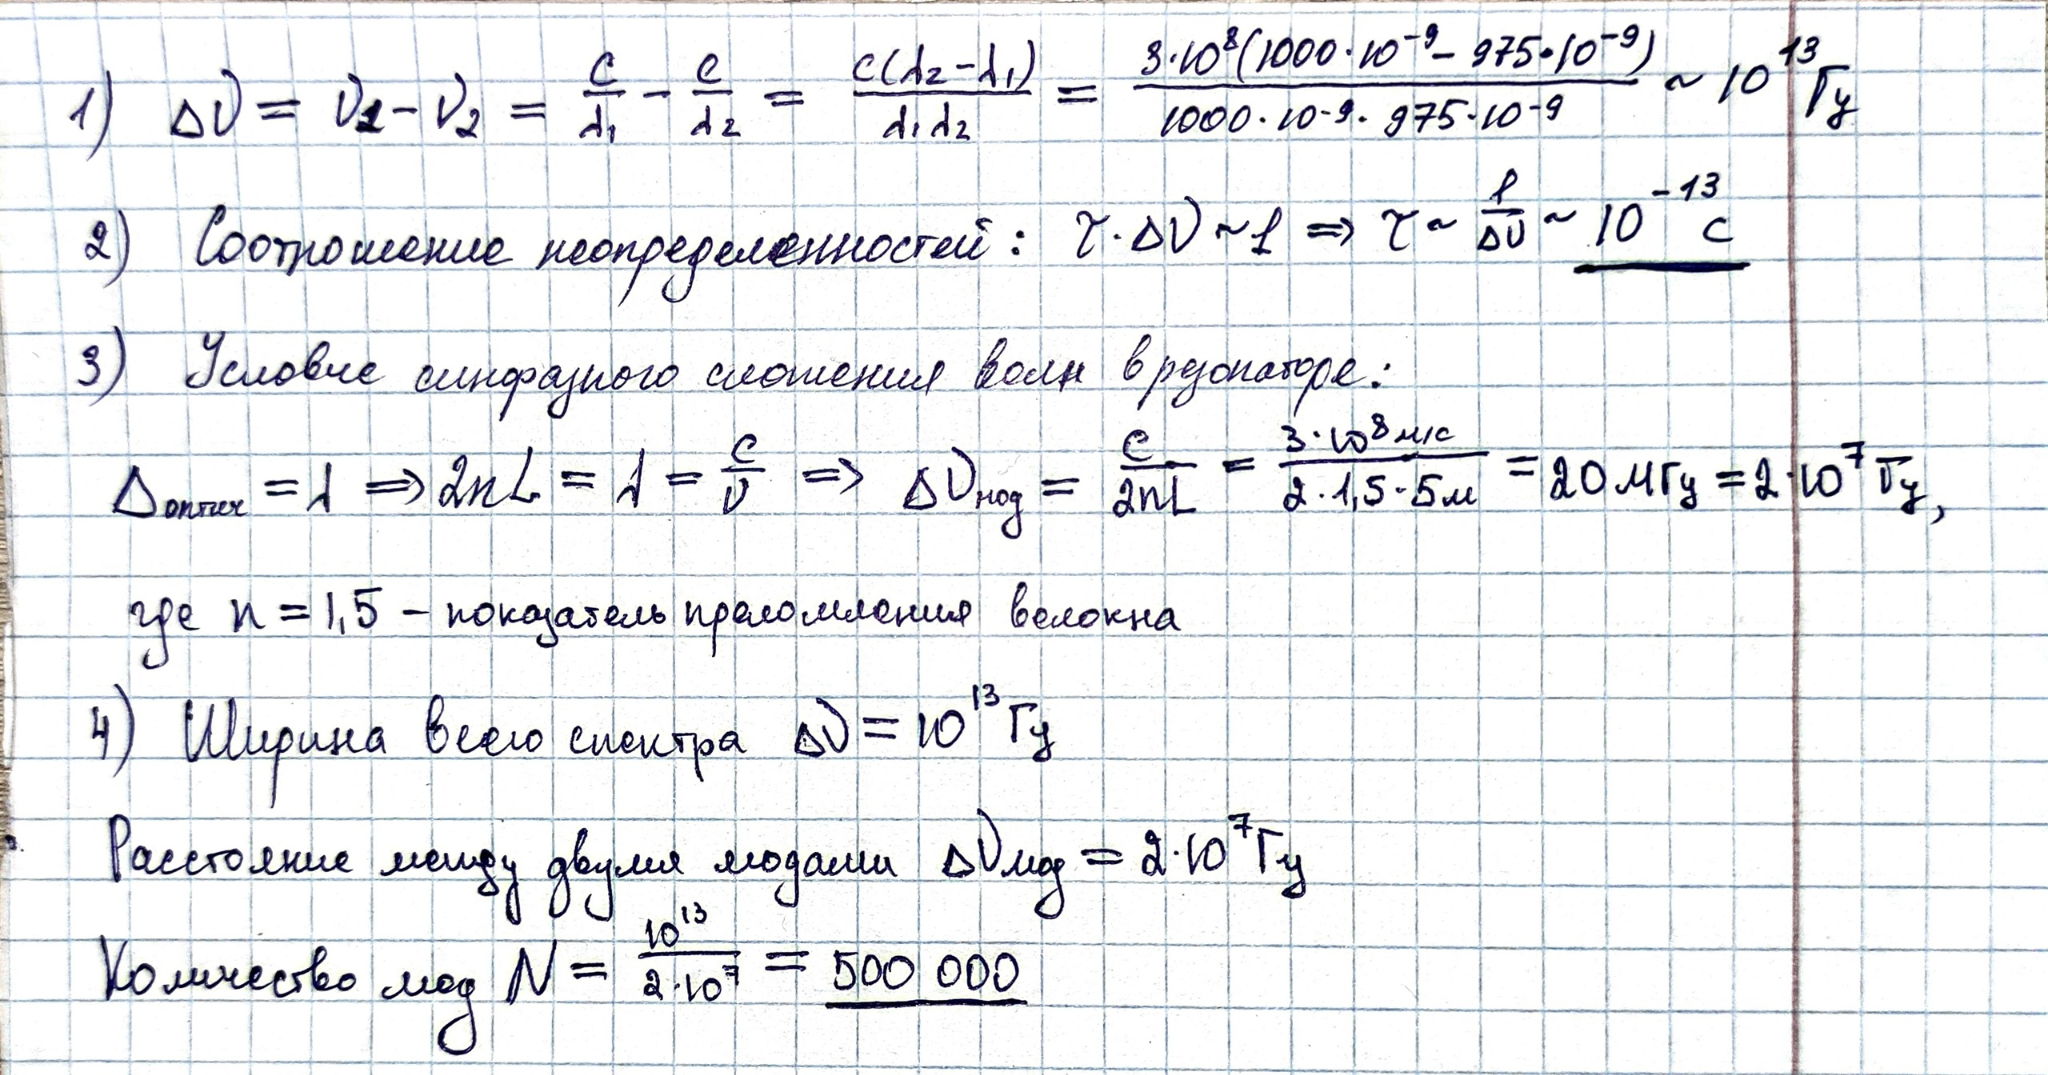 1) Δν = ν₁ - ν₂ = c/λ₁ - c/λ₂ = c(λ₂-λ₁)/λ₁λ₂ = 3·10⁸(1000·10⁻⁹ - 975·10⁻⁹)/1000·10⁻⁹·975·10⁻⁹ ~ 10¹³ Гц
2) Соотношение неопределенностей: τ·Δν ~ 1 ⇒ τ ~ 1/Δν ~ 10⁻¹³ с
3) Условие синфазного сложения волн в резонаторе:
Δоптич = λ ⇒ 2nL = λ = c/ν ⇒ Δνмод = c/2nL = 3·10⁸ м/с/2·1,5·5м = 20 МГц = 2·10⁷ Гц,
где n = 1,5 – показатель преломления волокна
4) Ширина всего спектра Δν = 10¹³ Гц
Расстояние между двумя модами Δνмод = 2·10⁷ Гц
Количество мод N = 10¹³/2·10⁷ = 500 000